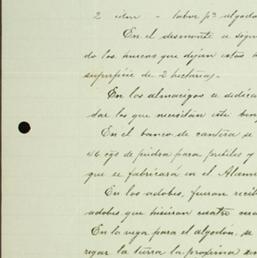 2 idem - labor pª algodon
En el desmonte se sigui
do los huecos que dejan estos a
superficie de 2 hectarias.
En los almacigos se dedica
dar los que necesitan este
En el banco de cantera se
46 ojs de piedra para pretiles y
que se fabricará en el
En los adobes, fueron reci
adobes que hicieron cuatro
En la vega para el algodon, se
regar la tierra la proxima